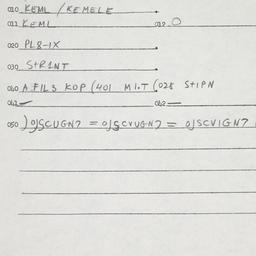 010 KEML / KEMELE
011 KEML 012 O
020 PL8-IX
030 S+R1NT
040 A FILS KOP (401 M1.T (028 S+IPN
041 — 042 —
050 )OJSCUGN? = OJSCVUGN? = OJSCVIGN?